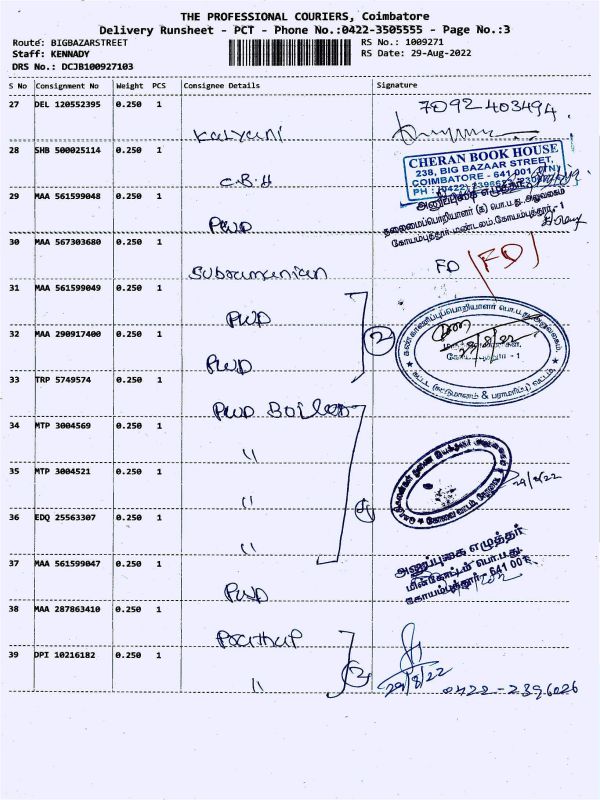 THE PROFESSIONAL COURIERS, Coimbatore
Delivery Runsheet - PCT - Phone No.:0422-3505555 - Page No.:3
Route: BIGBAZARSTREET
RS No.: 1009271
Staff: KENNADY
RS Date: 29-Aug-2022
DRS No.: DCJB100927103
S No Consignment No Weight PCS Consignee Details Signature
27 DEL 120552395 0.250 1
7092-403494
Kalyani
28 SHB 500025114 0.250 1
CHERAN BOOK HOUSE
238, BIG BAZAAR STREET,
COIMBATORE - 641 001. (TN)
C.B.H
29 MAA 561599048 0.250 1
அனுப்புகை எழுத்தர்
தலைமைப்பொறியாளர் (க) பொ.ப.து. அலுவலகம்
கோயம்புத்தூர் மண்டலம், கோயம்புத்தூர்-1
PWD
30 MAA 567303680 0.250 1
FD FD
Subramanian
31 MAA 561599049 0.250 1
PWD
32 MAA 290917400 0.250 1
2
29/8/22
PWD
33 TRP 5749574 0.250 1
PWD Boiler
34 MTP 3004569 0.250 1
"
35 MTP 3004521 0.250 1
29/8/22
"
36 EDQ 25563307 0.250 1
"
37 MAA 561599047 0.250 1
அனுப்புகை எழுத்தர்
மின்கோட்டம் பொ.ப.து
கோயம்புத்தூர் - 641 001
PWD
38 MAA 287863410 0.250 1
Parthip
39 DPI 10216182 0.250 1
2
29/8/22
0422-2396026
"